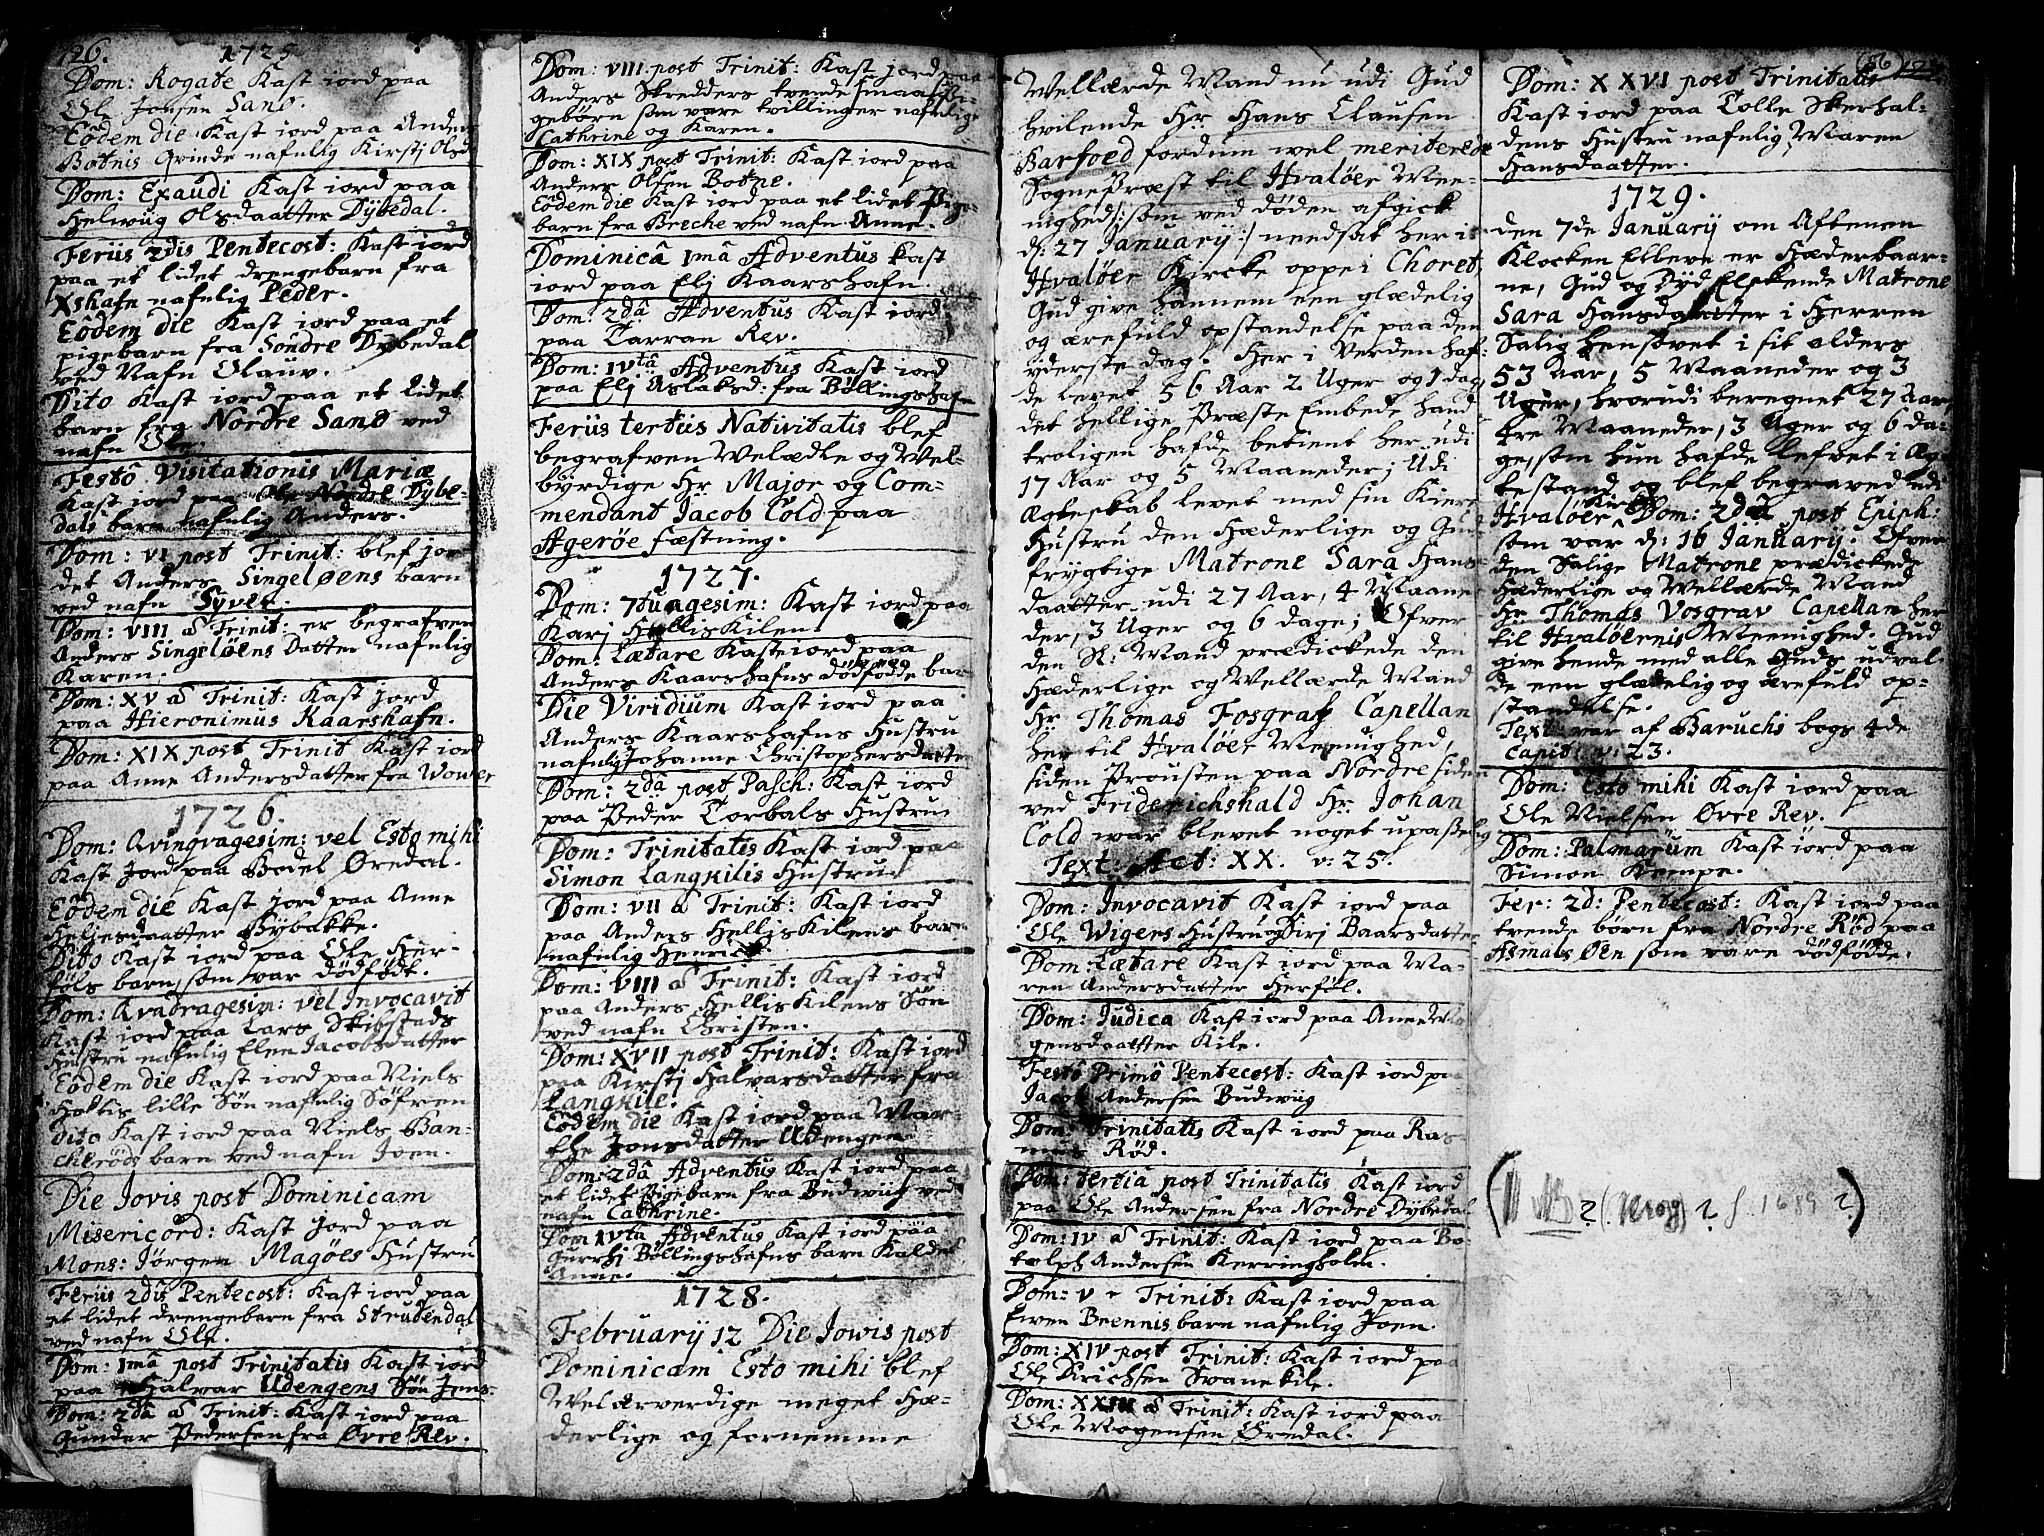 126.
1725
Dom: Rogate Kast iord paa
Ole Jonsen Sand.
Eôdem die Kast iord paa Anders
Botnis Qvinde nafnlig Kirstj Olsd
Dom: Exaudi Kast iord paa
Helwug Olsdaatter Dÿbedal.
Feriis 2dis Pentecost: Kast iord
paa et lidet drengebarn fra
Xshafn nafnlig Peder.
Eôdem die Kast iord paa et
pigebarn fra Söndre Dÿbedal
ved Nafn Olauv.
Dito Kast iord paa et lidet
barn fra Nordre Sand ved
nafn Ole.
Festô Visitationis Mariæ
Kast iord paa Ole Nordre Dÿbe-
dals barn nafnlig Anders.
Dom: VI post Trinit: blef jor-
det Anders Singeløens barn
ved nafn Syver.
Dom: VIII â Trinit: er begrafven
Anders Singeløens Datter nafnlig
Karen.
Dom: XV â Trinit: Kast jord
paa Hieronimus Kaarshafn.
Dom: XIX post Trinit Kast iord
paa Anne Andersdatter fra Wower
1726.
Dom: Qvinqvagesim: vel Esto mihi
Kast Jord paa Bodel Øredal.
Eôdem die Kast jord paa Anne
Heljesdaatter Bÿbakke.
Dito Kast iord paa Ole Her-
föls barn, som var dödfödt.
Dom: Qvadragesim: vel Invocavit
Kast iord paa Lars Skibstads
Hustru nafnlig Elen Jacobsdatter
Eôdem die Kast iord paa Niels
Holtis lille Søn nafnlig Søfren
Dito Kast iord paa Niels Ban-
chröds barn ved nafn Joen.
Die Jovis post Dominicam
Misericord: Kast Jord paa
Mons: Jørgen Magöes Hustru
Feriis 2dis Pentecost: Kast iord paa
et lidet drengebarn fra Strudendal
ved nafn Ole.
Dom: 1mâ post Trinitatis Kast iord
paa Halvar Udengens Søn Jens.
Dom: 2dâ â Trinit: Kast iord paa
Gunder Pedersen fra Øvre Rev.
Dom: VIII post Trinit: Kast jord paa
Anders Skredders tvende smaa Pi-
gebørn som vare tvillinger nafnlig
Cathrine og Karen.
Dom: XIX post Trinit: Kast iord paa
Anders Olsen Botne.
Eôdem die Kast iord paa et lidet Pige-
barn fra Breche ved nafn Anne.
Dominicâ 1mâ Adventus Kast
iord paa Elj Kaarshafn.
Dom: 2dâ Adventus Kast iord
paa Tarran Rev.
Dom: IVtâ Adventus Kast iord
paa Elj Aslaksd: fra Böllingshafn
Feriis tertiis Nativitatis blef
begrafven Welædle og Wel-
bÿrdige Hr Major og Com-
mendant Jacob Cold paa
Agerøe fæstning.
1727.
Dom: 7tuagesim: Kast iord paa
Karj Hellis Kilen.
Dom: Lætare Kaste iord paa
Anders Kaarshafns dödfödde barn
Die Viridium Kast iord paa
Anders Kaarshafns Hustru
nafnlig Johanne Christophersdatter
Dom: 2dâ post Pasch: Kast iord
paa Peder Torbals Hustru
Dom: Trinitatis Kast iord paa
Simon Langkilis Hustru
Dom: VII â Trinit: Kast iord
paa Anders Hellis Kilens barn
nafnlig Henrick
Dom: VIII â Trinit: Kast iord
paa Anders Hellis Kilens Søn
ved nafn Christen.
Dom: XVII post Trinit: Kast iord
paa Kirstj Halvarsdatter fra
Langkile.
Eôdem die Kast iord paa Mar-
the Jonsdatter Udengen
Dom: 2dâ Adventus Kast iord paa
et lidet Pigebarn fra Budwiig ved
nafn Cathrine.
Dom IVta Adventus Kast iord paa
Gurrhj Böllingshafns barn Kaldet
Anne.
1728.
Februarÿ 12 Die Jowis post
Dominicam Esto mihi blef
Welærverdige meget Hæ-
derlige og fornemme
Wellærde Mand nu udi Gud
hvilende Hr: Hans Clausen
Barfoed fordum wel meriterede
SognePræst til Hvaløer Mee-
nighed /: som ved døden afgick
d: 27 Januarÿ :/ needsat her i
Hvaløer Kircke oppe i Choret,
Gud give hannem een glædelig
og ærefuld opstandelse paa den
yderste dag. Her i Verden haf-
de levet 56 Aar 2 Uger og 1 dag
det hellige Præste Embede haud
troligen hafde betient her udi
17 Aar og 5 Maaneder; Udi
Ægteskab levet med sin Kiere
Hustru den Hæderlige og Gud-
frygtige Matrone Sara Hans-
daatter udi 27 Aar, 4 Maane-
der, 3 Uger og 6 dage; Ofver
den Sl: Mand prædickede den
Hæderlige og Wellærde Mand
Hr: Thomas Fosgraf Capellan
her til Hvaløer Meenighed,
siden Prousten paa Nordre siden
ved Friderichshald Hr: Johan
Cold war blevet noget upaßelig
Text: Act: XX. v: 25.
Dom: Invocavit Kast iord paa
Ole Wigens Hustru Sirj Baarsdatter
Dom: Lætare Kast iord paa Ma-
ren Andersdatter Herföl.
Dom: Judica Kast iord paa Anne Mo-
gensdaatter Kile.
Festô Primô Pentecost: Kast iord paa
Jacob Andersen Budwiig
Dom: Trinitatis Kast iord paa Ras-
mus Rød.
Dom: tertiâ post Trinitatis Kast iord
paa Ole Andersen fra Nordre Dÿbedal
Dom: IV â Trinit: Kast iord paa Bo-
tolph Andersen Kerringholm.
Dom: V â Trinit: Kast iord paa
Ewen Brennis barn nafnlig Joen.
Dom: XIV post Trinit: Kast iord paa
Ole Dirichsen Svanekile.
Dom: XXIII â Trinit: Kast iord paa
Ole Mogensen Øredal.
(86)
Dom: XXVI post Trinitatis
Kast iord paa Tolle Skerhal-
dens Hustru nafnlig Maren
Hansdaatter.
1729.
den 7de Januarÿ om Aftenen
Klocken Elleve er Hæderbaar-
ne, Gud og Dÿd Elskende Matrone
Sara Hansdaatter i Herren
Salig hensovet i sit alders
53 Aar, 5 Maaneder og 3
Uger, hvorudi beregnet 27 Aar
tre Maaneder, 3 Uger og 6 da-
ge, som hun hafde lefvet i Æg-
testand og blef begraved udi
Hvaløer Kircke Dom: 2dâ post Epiph:
som var d: 16 Januarÿ. Ofver
den Salige Matrone prædickede
Hæderlige og Wellærde Mand
Hr Thomas Vosgrav Capellan her
til Hvaløernis Meenighed. Gud
give hende med alle Guds udval-
de een glædelig og ærefuld op-
standelse.
Text: var af Baruchi bogs 4de
Capit: v: 23.
Dom: Esto mihi Kast iord paa
Ole Nielsen Øvre Rev.
Dom: Palmarum Kast iord paa
Simon Kempe.
Fer: 2d: Pentecost: Kast iord paa
tvende börn fra Nordre Röd paa
Asmals Øen som vare dödfödde.
? (Krog) ? f. 1689 ?)